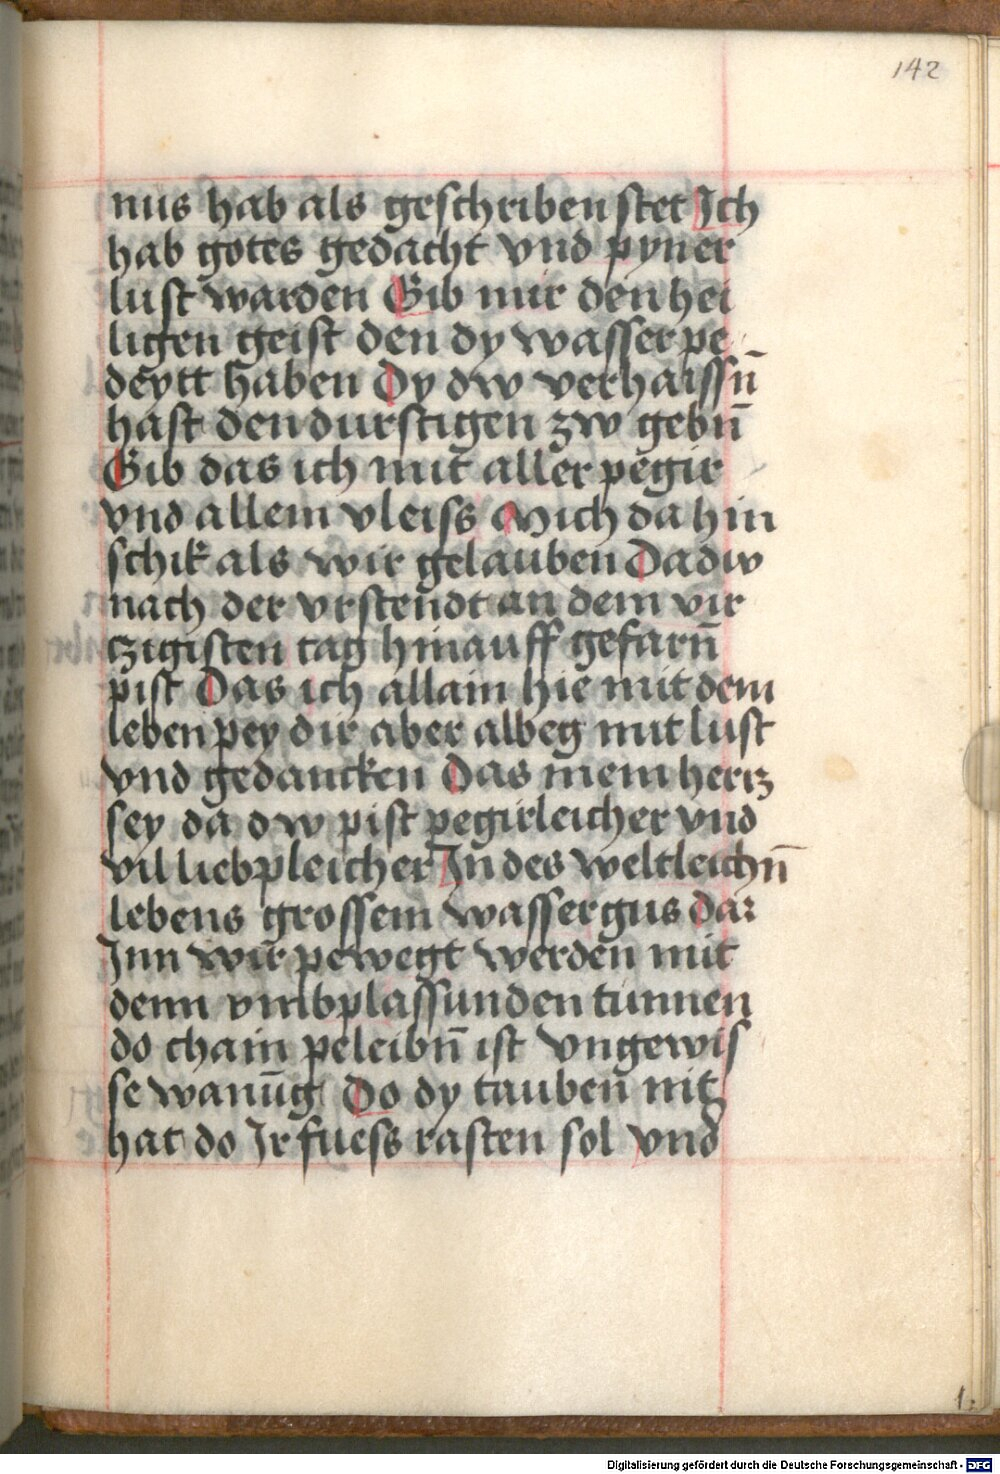 142
nus hab als geschriben stet Ich
hab gotes gedacht vnd pyn er
lust warden Gib mir den hei
ligen geist den dy wasser pe
deytt haben Dy dw verhaissn̄
hast den durstigen zw gebn̄
Gib das ich mit aller pegir
vnd allem vleiss Mich da hin
schik als wir gelauben Da dw
nach der vrstendt an dem vir
tzigisten tag hinauff gefarn̄
pist Das ich allain hie mit dem
leben pey dir aber albeg mit lust
vnd gedancken Das mein hertz
sey da dw pist pegirleicher vnd
vil liebpleicher In des weltleichn̄
lebens grossem wassergus dar
Inn wir pewegt werden mit
denn vmbplassunden tunnen
do chain peleibn̄ ist vngewis
se wanūg Do dy tauben nit
hat do Ir fuess rasten sol vnd
Digitalisierung gefördert durch die Deutsche Forschungsgemeinschaft - DFG